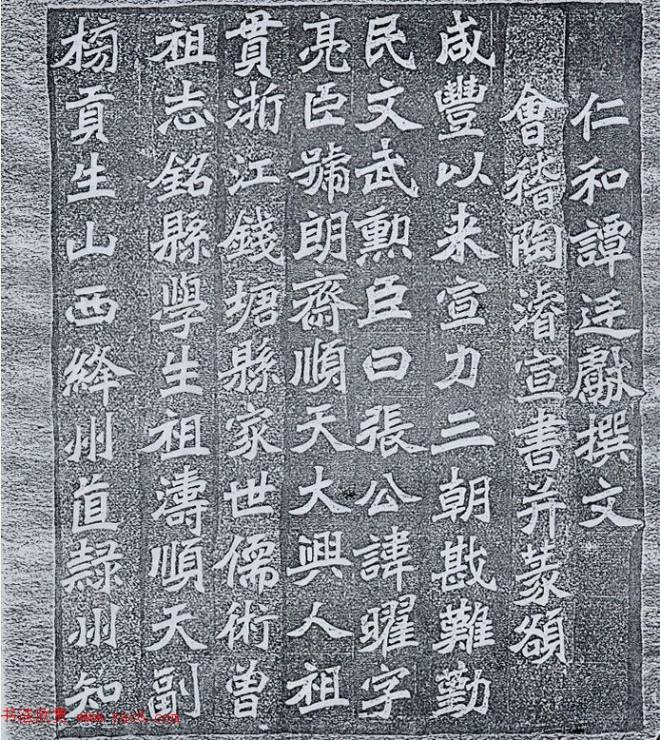 仁和譚廷獻撰文
會稽陶濬宣書并篆額
咸豐以来宣力二朝戡難勤
民文武勳臣曰張公諱曜字
亮臣號朗齋順天大興人祖
貫浙江錢塘縣家世儒術曾
祖志銘縣學生祖濤順天副
榜貢生山西絳州直隸州知
www.yac8.com